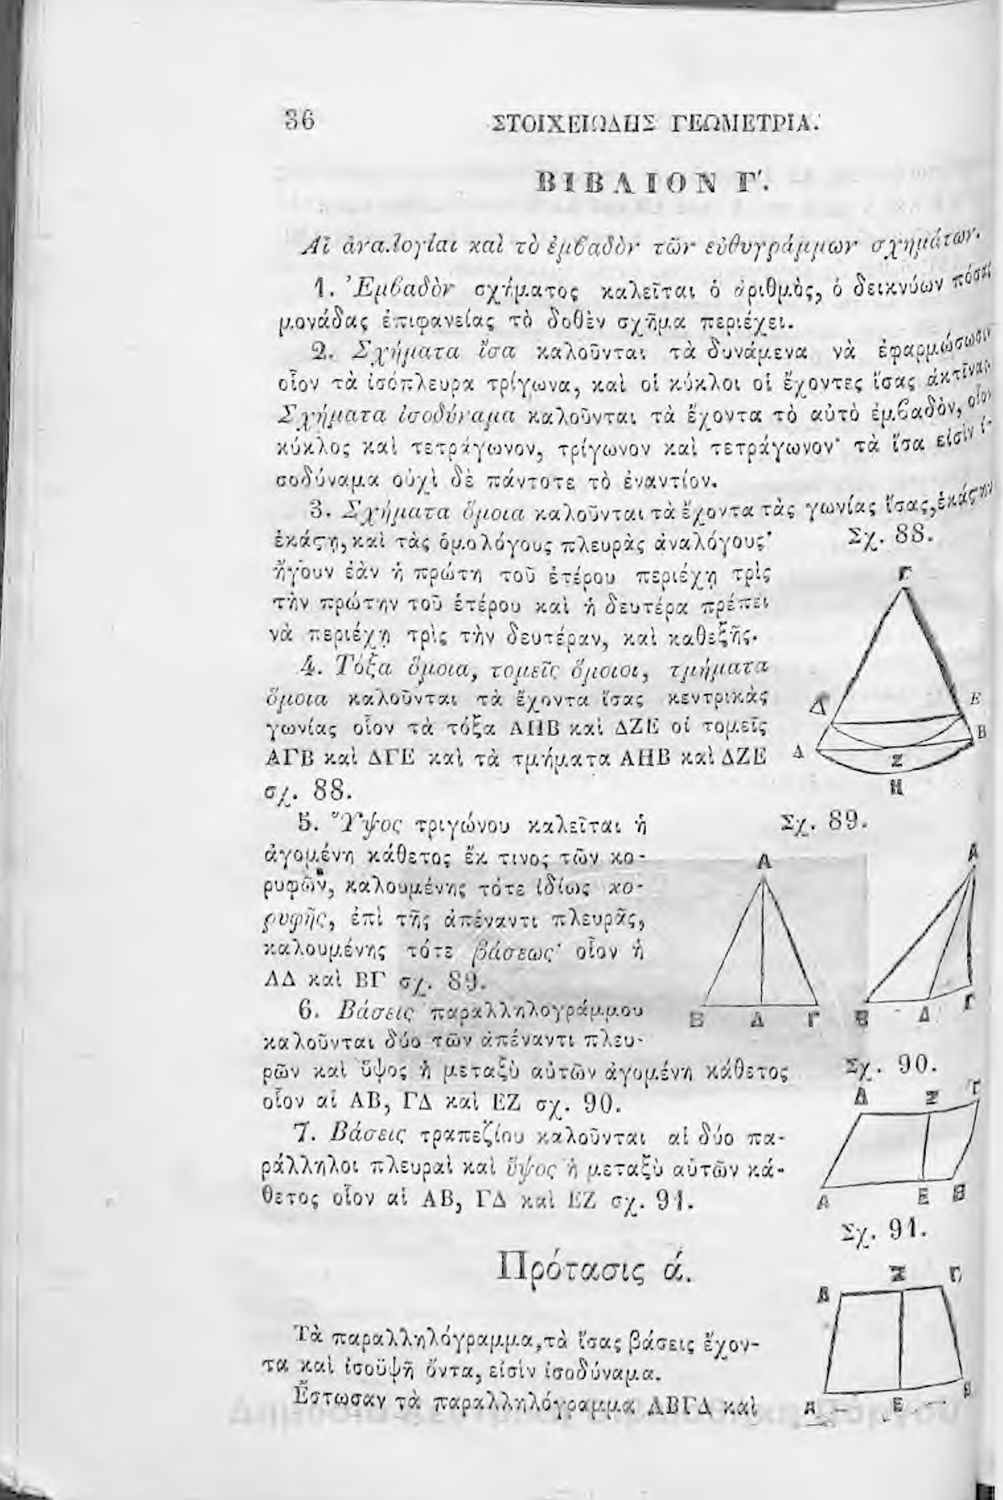 36 ΣΤΟΙΧΕΙΩΔΗΣ ΓΕΩΜΕΤΡΙΑ.
ΒΙΒΛΙΟΝ Γ'.
Αἱ ἀναλογίαι καὶ τὸ ἐμβαδὸν τῶν εὐθυγράμμων σχημάτων.
1. Ἐμβαδὸν σχήματος καλεῖται ὁ ἀριθμὸς, ὁ δεικνύων πόσας
μονάδας ἐπιφανείας τὸ δοθὲν σχῆμα περιέχει.
2. Σχήματα ἴσα καλοῦνται τὰ δυνάμενα νὰ ἐφαρμώσωσιν
οἷον τὰ ἰσόπλευρα τρίγωνα, καὶ οἱ κύκλοι οἱ ἔχοντες ἴσας ἀκτῖνας.
Σχήματα ἰσοδύναμα καλοῦνται τὰ ἔχοντα τὸ αὐτὸ ἐμβαδὸν, οἷον
κύκλος καὶ τετράγωνον, τρίγωνον καὶ τετράγωνον· τὰ ἴσα εἰσὶν ἰ-
σοδύναμα οὐχὶ δὲ πάντοτε τὸ ἐναντίον.
3. Σχήματα ὅμοια καλοῦνται τὰ ἔχοντα τὰς γωνίας ἴσας, ἑκάςην
ἑκάςῃ, καὶ τὰς ὁμολόγους πλευρὰς ἀναλόγους·
ἤγουν ἐὰν ἡ πρώτη τοῦ ἑτέρου περιέχῃ τρὶς
τὴν πρώτην τοῦ ἑτέρου καὶ ἡ δευτέρα πρέπει
νὰ περιέχῃ τρὶς τὴν δευτέραν, καὶ καθεξῆς.
4. Τόξα ὅμοια, τομεῖς ὅμοιοι, τμήματα
ὅμοια καλοῦνται τὰ ἔχοντα ἴσας κεντρικὰς
γωνίας οἷον τὰ τόξα ΑΗΒ καὶ ΔΖΕ οἱ τομεῖς
ΑΓΒ καὶ ΔΓΕ καὶ τὰ τμήματα ΑΗΒ καὶ ΔΖΕ
σχ. 88.
Σχ. 88.
Γ
Δ Ε
Α Β
Ζ
Η
5. Ὕψος τριγώνου καλεῖται ἡ
ἀγομένη κάθετος ἔκ τινος τῶν κο-
ρυφῶν, καλουμένης τότε ἰδίως κο-
ρυφῆς, ἐπὶ τῆς ἀπέναντι πλευρᾶς,
καλουμένης τότε βάσεως· οἷον ἡ
ΑΔ καὶ ΒΓ σχ. 89.
Σχ. 89.
Α Α
Β Δ Γ Β Δ Γ
6. Βάσεις παραλληλογράμμου
καλοῦνται δύο τῶν ἀπέναντι πλευ-
ρῶν καὶ ὕψος ἡ μεταξὺ αὐτῶν ἀγομένη κάθετος
οἷον αἱ ΑΒ, ΓΔ καὶ ΕΖ σχ. 90.
Σχ. 90.
Δ Ζ Γ
Α Ε Β
7. Βάσεις τραπεζίου καλοῦνται αἱ δύο πα-
ράλληλοι πλευραὶ καὶ ὕψος ἡ μεταξὺ αὐτῶν κά-
θετος οἷον αἱ ΑΒ, ΓΔ καὶ ΕΖ σχ. 91.
Σχ. 91.
Δ Ζ Γ
Α Ε Β
Πρότασις ά.
Τὰ παραλληλόγραμμα, τὰ ἴσας βάσεις ἔχον-
τα καὶ ἰσοϋψῆ ὄντα, εἰσὶν ἰσοδύναμα.
Ἔστωσαν τὰ παραλληλόγραμμα ΑΒΓΔ καὶ